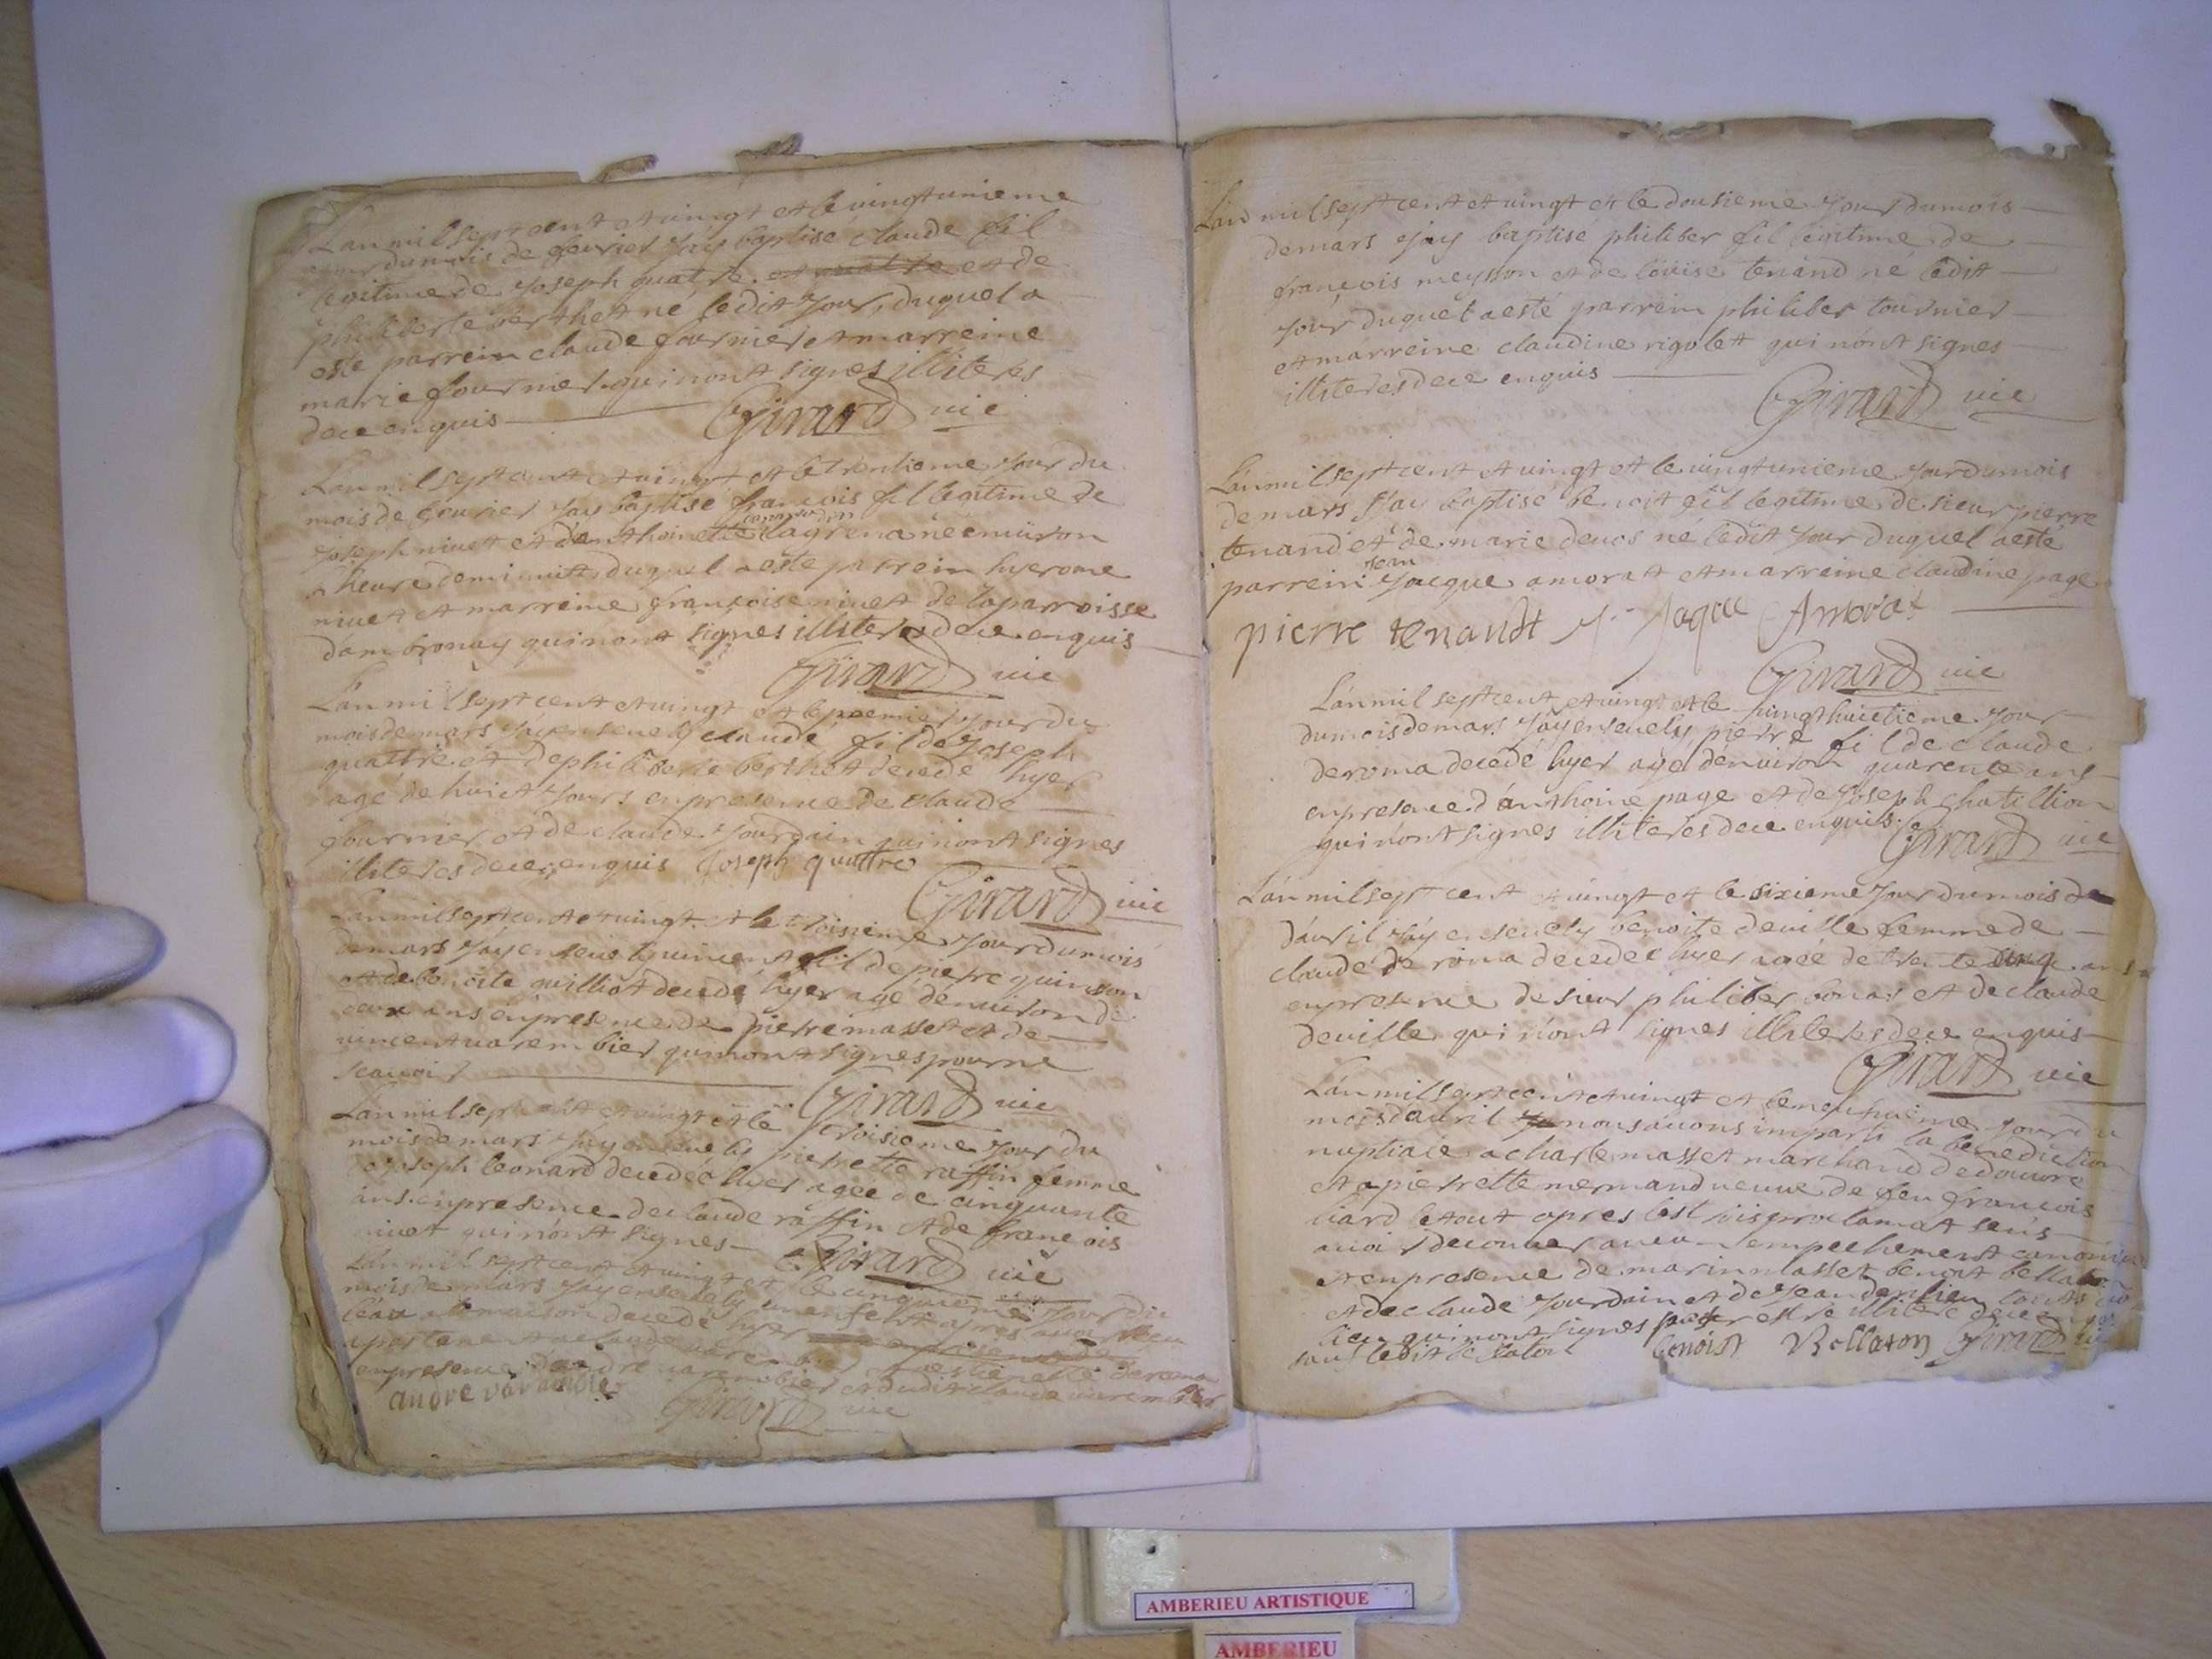 Lan mil sept cent et vingt et le vingt unieme
jour du mois de fevrier jay baptisé claude fil
legitime de joseph quatre et quatre et de
philiberte berthet né ledit jour, duquel a
esté parrein claude fournier et marreine
marie fournier qui n'ont signes illiteres
de ce enquis
Girard vic
Lan mil sept cent et vingt et le trentieme jour du
mois de fevrier jay baptisé francois fil legitime de
joseph nivet et d'anthoinette lagrena né environ
heure de minuit duquel a esté parrein hyerome
nivet et marreine françoise nivet de la parroisse
d'ambronay qui n'ont signes illiteres de ce enquis
Girard vic
Lan mil sept cent et vingt et le premier jour du
mois de mars jay ensevely claude fil de Joseph
quattre et de philiberte berthet decedé hyer
agé de huict jours en presence de claude
fournier et de claude jourdain qui n'ont signes
illiteres de ce enquis Joseph quattre
Girard vic
Lan mil sept cent et vingt et le troisieme jour du mois
de mars jay ensevely vincent fil de pierre quinson
et de benoite quilliot decedé hyer agé d'environ de
deux ans en presence de pierre masset et de
vincent varembier qui n'ont signes pour ne
scavoir
Girard vic
Lan mil sept cent et vingt et le troisieme jour du
mois de mars jay ensevely pierrette raffin femme
de joseph leonard decedée hyer agée de cinquante
ans en presence de claude raffin et de francois
nivet qui n'ont signes
Girard vic
Lan mil sept cent et vingt et le cinquieme jour du
mois de mars jay ensevely un enfent apres avoir receu
leau a la maison decedé hyer
apartenant a claude varembier et estienette deroma
en presence d'andré varembier et dudit claude varembier
andre varambier
Girard vic
Lan mil sept cent et vingt et le dousieme jour du mois
de mars jay baptise philiber fil legitime de
françois meysson et de loüise tenand né ledit
jour duquel a esté parrein philiber tournier
et marreine claudine rigolet qui n'ont signes
illiteres de ce enquis
Girard vic
Lan mil sept cent et vingt et le vingt unieme jour du mois
de mars jay baptisé benoit fil legitime de sieur pierre
tenand et de marie devos né ledit jour duquel a esté
jean
parrein jacque amorat et marreine claudine page
pierre tenandt J. Jaque Amorat
Girard vic
Lan mil sept cent et vingt et le vingt huictieme jour
du mois de mars jay ensevely pierre fil de claude
deroma decedé hyer agé d'environ quarente ans
en presence d'anthoine page et de joseph chatillion
qui n'ont signes illiteres de ce enquis
Girard vic
Lan mil sept cent et vingt et le sixieme jour du mois de
d'avril jay ensevely benoite deville femme de
claude de roma decedée hyer agée de trente cinq ans
en presence de sieur philiber bonar et de claude
deville qui n'ont signes illiteres de ce enquis
Girard vic
Lan mil sept cent et vingt et le neufvieme jour du
mois d'avril nous avons imparti la benediction
nuptiale a charle masset marchand de douvre
et a pierrette mermand veuve de feu francois
liard le tout apres les trois proclamat sens
avoir decouver aucun empechement canonique
et en presence de marin masset benoit bellaton
et de claude jourdain et de jean
lieu qui n'ont signes pour estre illiteré de ce enquis
sauf ledit bellaton benoist Bellaton Girard vic
AMBERIEU ARTISTIQUE
AMBERIEU